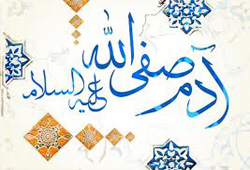 آدم صفي الله
عليه السلام